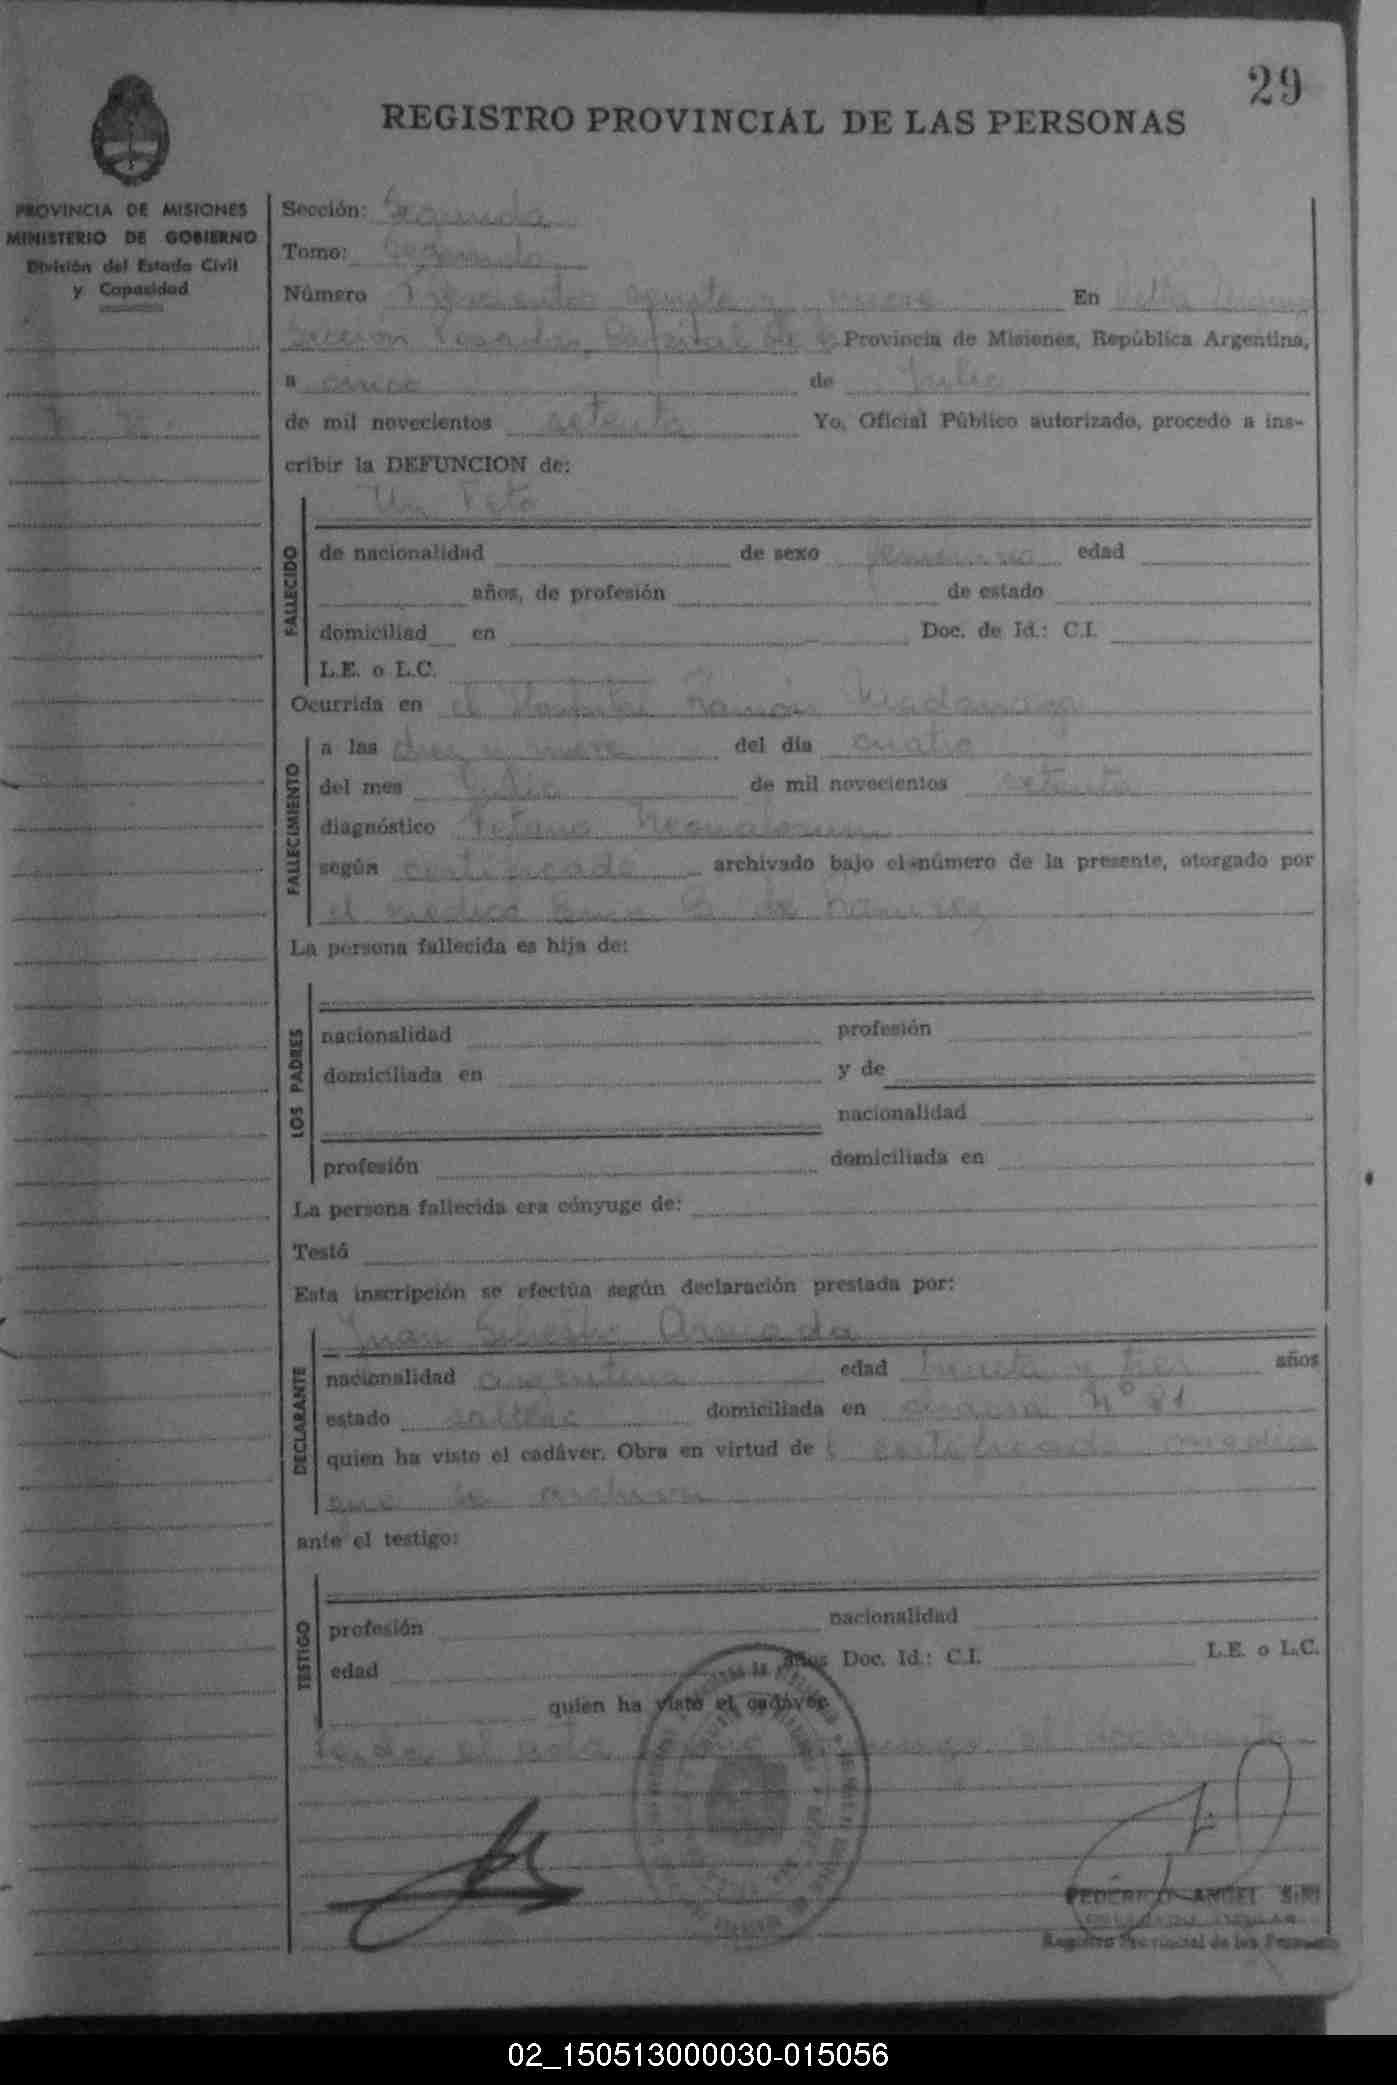 29
REGISTRO PROVINCIAL DE LAS PERSONAS
PROVINCIA DE MISIONES
MINISTERIO DE GOBIERNO
División del Estado Civil
y Capacidad
Sección: Segunda
Tomo: Segundo
Número Trescientos y nueve En Villa Urquiza
Sección Posadas Capital de la Provincia de Misiones, República Argentina,
a cinco de Julio
de mil novecientos setenta Yo, Oficial Público autorizado, procedo a ins-
cribir la DEFUNCION de:
Un Feto
FALLECIDO
de nacionalidad de sexo femenino edad
años, de profesión de estado
domiciliad en Doc. de Id.: C.I.
L.E. o L.C.
Ocurrida en el Hospital Ramón Madariaga
FALLECIMIENTO
a las diez y nueve del día cuatro
del mes Julio de mil novecientos setenta
diagnóstico
según certificado archivado bajo el número de la presente, otorgado por
el medico de Ramirez
La persona fallecida es hija de:
LOS PADRES
nacionalidad profesión
domiciliada en y de
nacionalidad
profesión domiciliada en
La persona fallecida era cónyuge de:
Testó
Esta inscripción se efectúa según declaración prestada por:
Juan Silvestre
DECLARANTE
nacionalidad argentina edad treinta y tres años
estado soltero domiciliada en chacra Nº 81
quien ha visto el cadáver. Obra en virtud de certificado medico
que se archiva
ante el testigo:
TESTIGO
profesión nacionalidad
edad años Doc. Id.: C.I. L.E. o L.C.
quien ha visto el cadáver
Leida el acta el declarante
FEDERICO ANGEL SIRI
Registro Provincial de las Personas
02_150513000030-015056